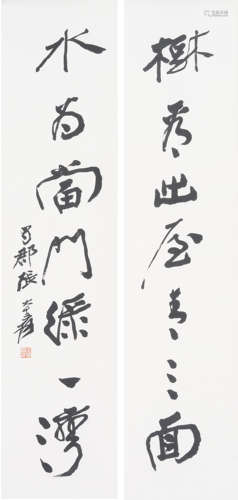 樹出屋青三面
水為當門綠一灣
蜀郡張大千爰